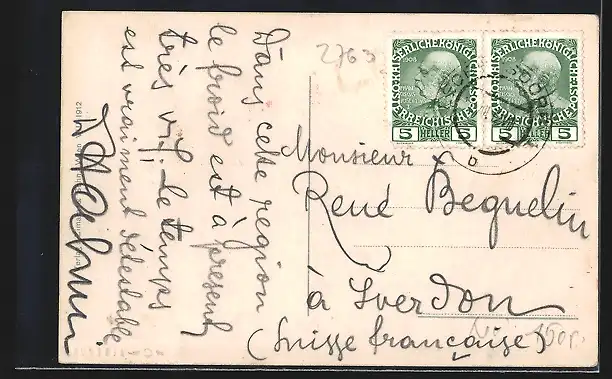 Dans cette region
le froid est à present
très vif. Le temps
est vraiment détestable
1912
2763
KAISERLICHE KÖNIGL
ÖSTERREICHISCHE POST
1908
5 HELLER 5
KAISERLICHE KÖNIGL
ÖSTERREICHISCHE POST
1908
5 HELLER 5
Monsieur
René Beguelin
à Yverdon
(Suisse française)